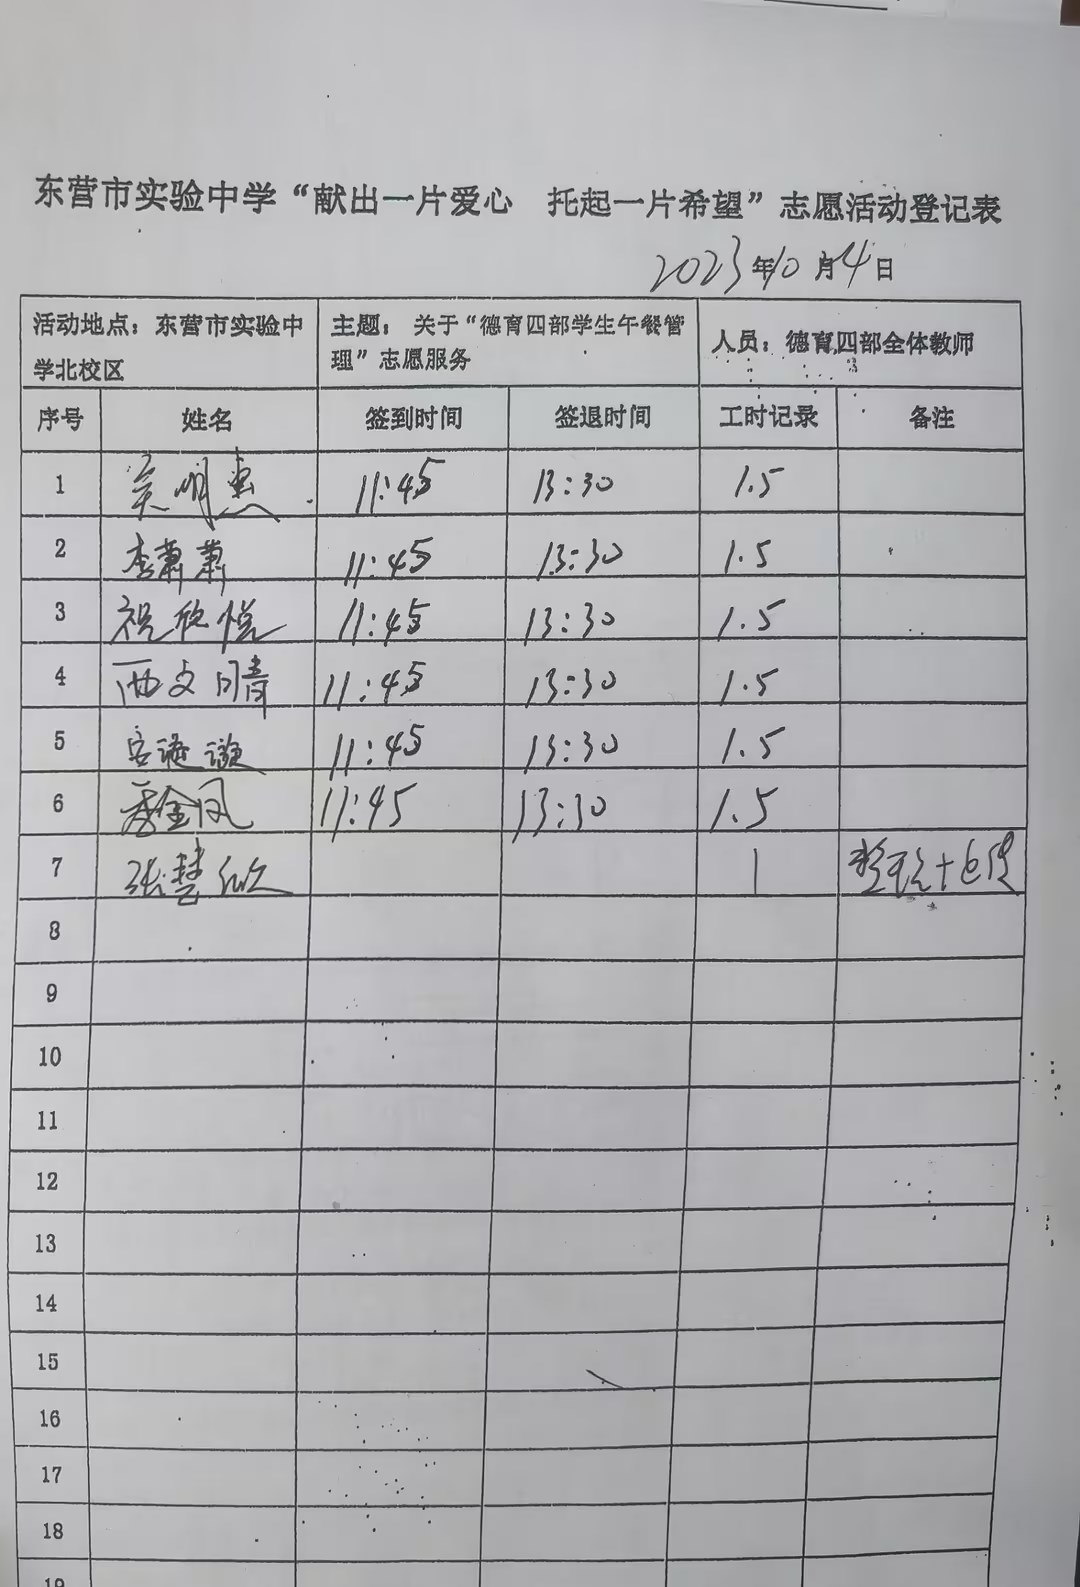 东营市实验中学“献出一片爱心 托起一片希望”志愿活动登记表
2023年10月4日
活动地点：东营市实验中
学北校区
主题：关于“德育四部学生午餐管
理”志愿服务
人员：德育四部全体教师
序号 姓名 签到时间 签退时间 工时记录 备注
1 吴明惠 11:45 13:30 1.5
2 李萧萧 11:45 13:30 1.5
3 祝欣悦 11:45 13:30 1.5
4 西文晴 11:45 13:30 1.5
5 11:45 13:30 1.5
6 季金凤 11:45 13:30 1.5
7 张慧欣 1
8
9
10
11
12
13
14
15
16
17
18
19